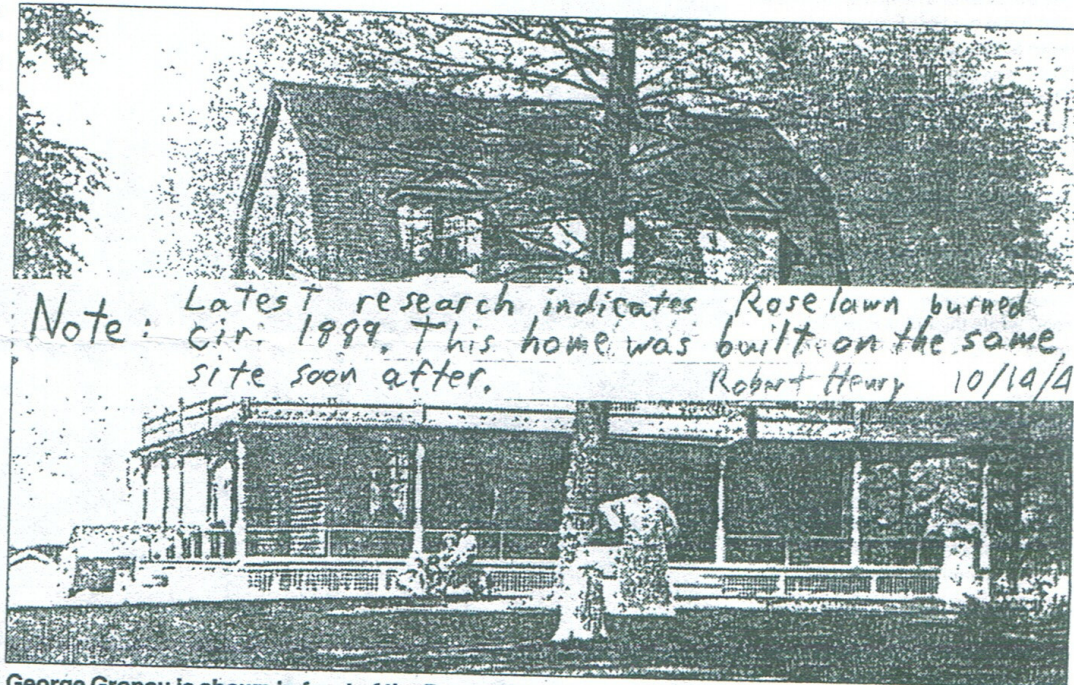 Note: Latest research indicates Rose lawn burned
cir. 1889. This home was built on the same
site soon after. Robert Henry 10/14/4
George is shown in front of the